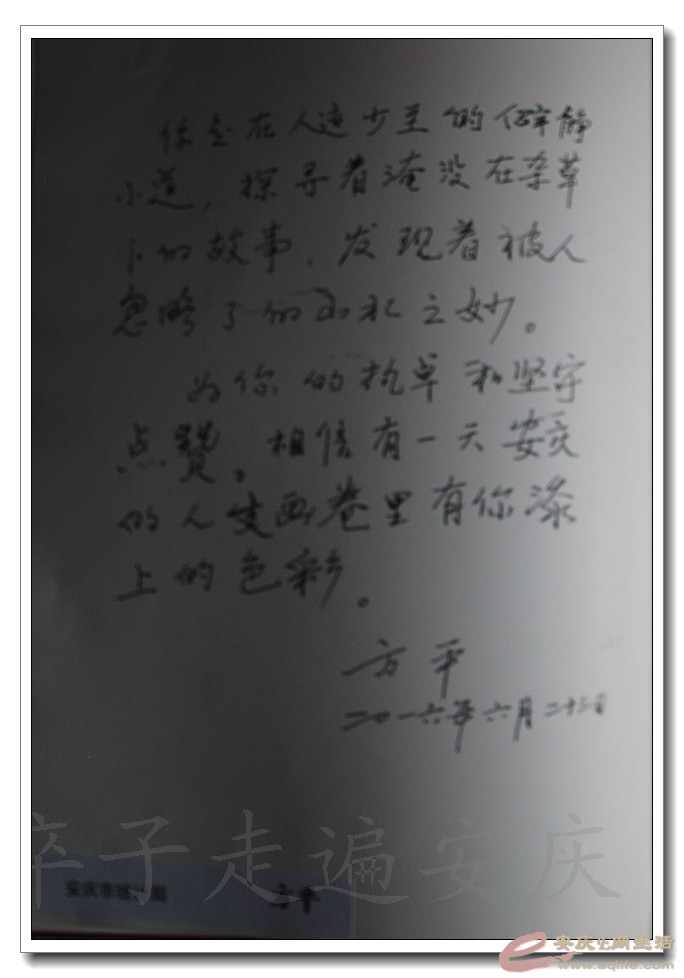 你总在人迹少至的僻静
小道，探寻着淹没在杂草
下的故事，发现着被人
忽略了的山水之妙。
为你的执卓和坚守
点赞。相信有一天安庆
的人文画卷里有你添
上的色彩。
方平
二〇一六年六月二十三日
子走遍安庆
安庆市 局
方平
安庆e网生活
www.aqlife.com